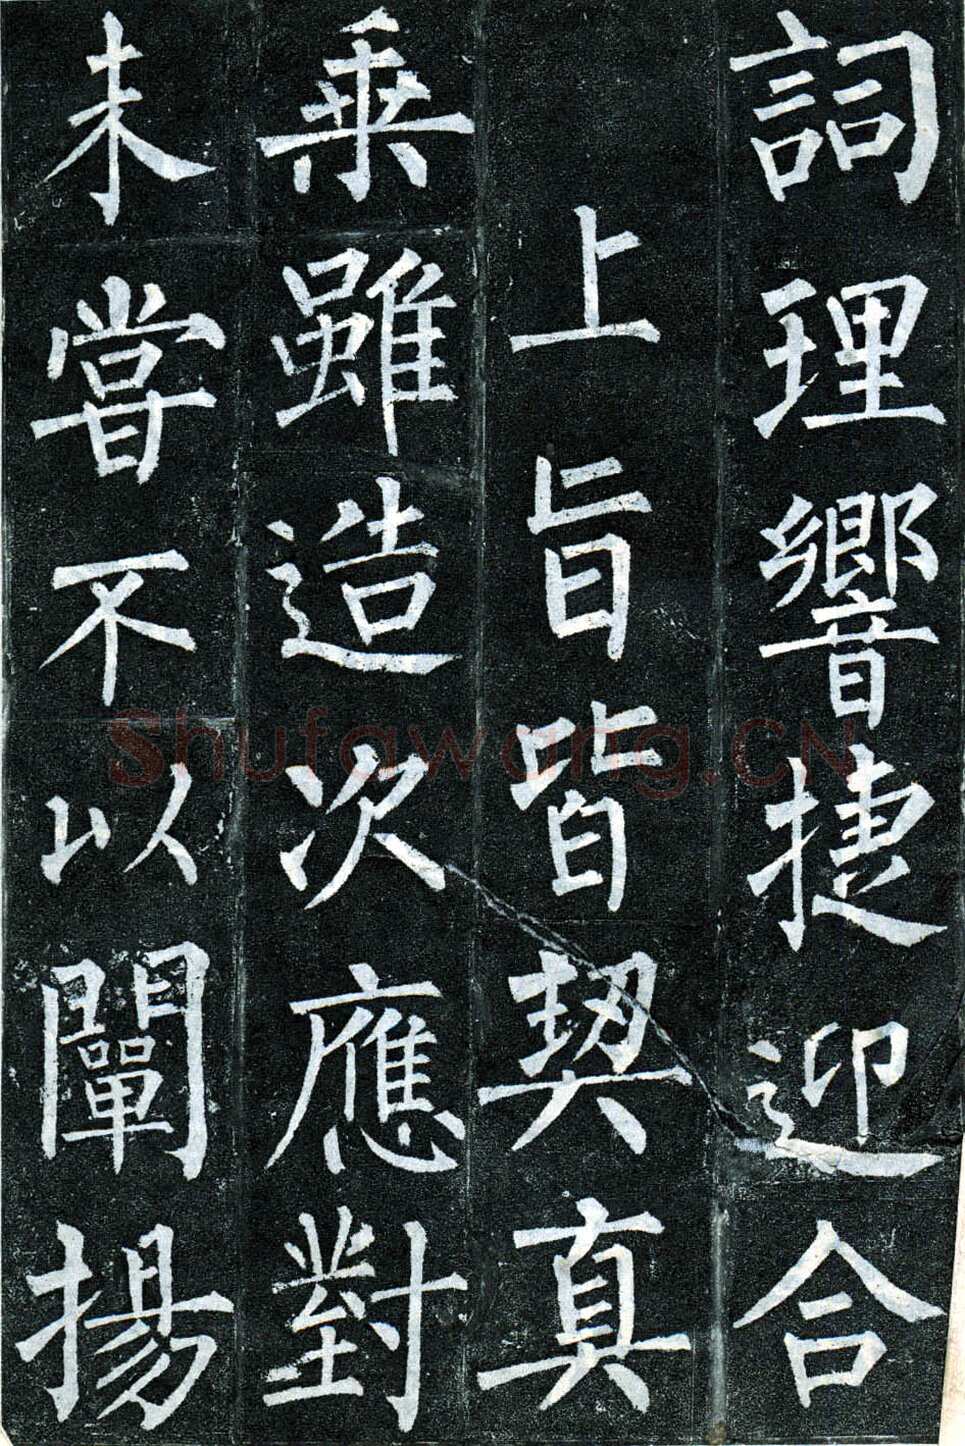 詞理響捷迎合
上旨皆契真
乗雖造次應對
未甞不以闡揚
Shufawang.CN